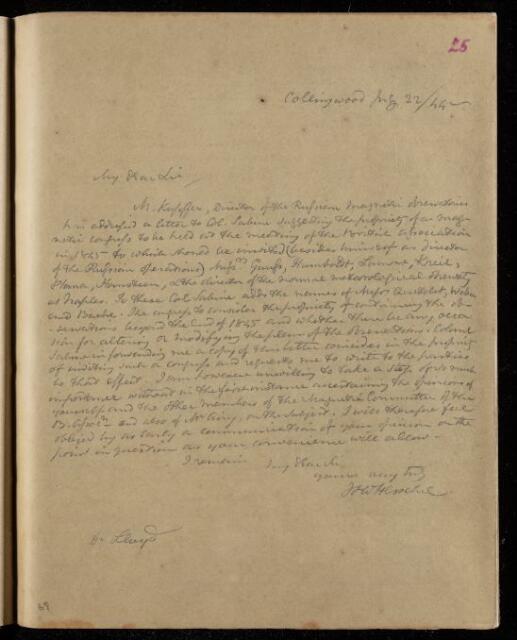 25
Collingwood July 22/44
My Dear Sir,
M. Kupffer, Director of the Russian Magnetic Observatories
has addressed a letter to Col. Sabine suggesting the propriety of a mag-
netic congress to be held at the meeting of the British Association
in 1845 to which should be invited (besides himself as director
of the Russian operations) Messrs Gauss, Humboldt, Lamont, Kreil,
Hansteen, & the director of the normal meteorological observatory
at Naples. To these Col Sabine adds the names of Messrs Quetelet, Weber
and Bache. The congress to consider the propriety of continuing the ob-
servations beyond the end of 1845 and whether there be any occa-
sion for altering or modifying the plan of the observations. Colonel
Sabine in forwarding me a copy of this letter coincides in the propriety
of inviting such a congress and requests me to write to the parties
to that effect. I am however unwilling to take a step of so much
importance without in the first instance ascertaining the opinions of
yourself and the other members of the Magnetic Committee of the
B. Assocn and also of Mr Airy, on the subject. I will therefore feel
obliged by as early a communication of your opinion on the
point in question as your convenience will allow.
I remain My Dear Sir
yours very truly
JFW Herschel
Dr Lloyd